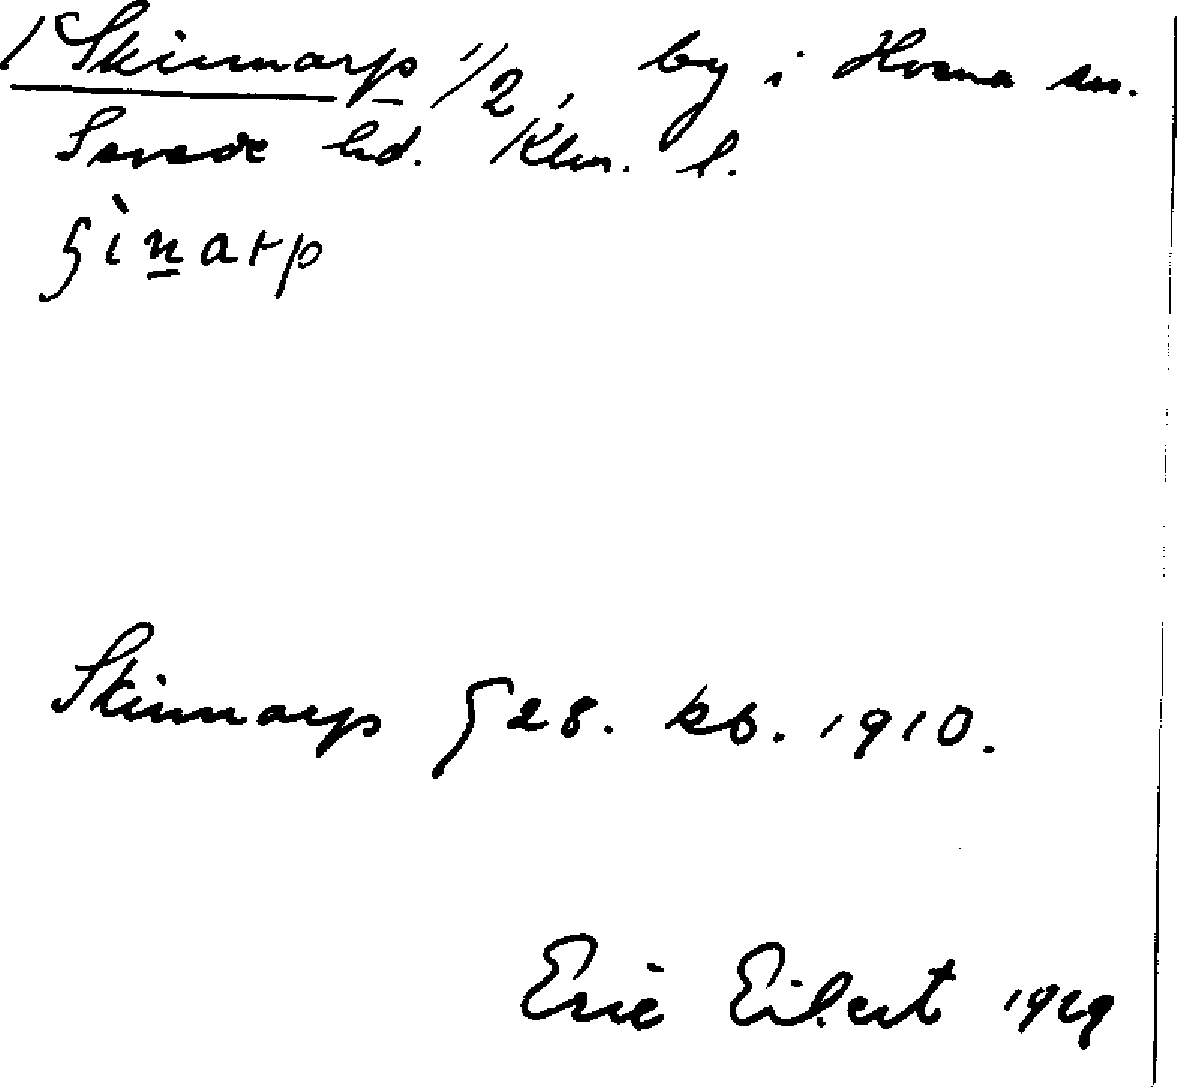 Skinnarp 1/2, by i Horna sn.
Sevede hd. Klm. l.
ʂìn̲arp
Skinnarp § 28. kb. 1910.
Eric Eilert 1929